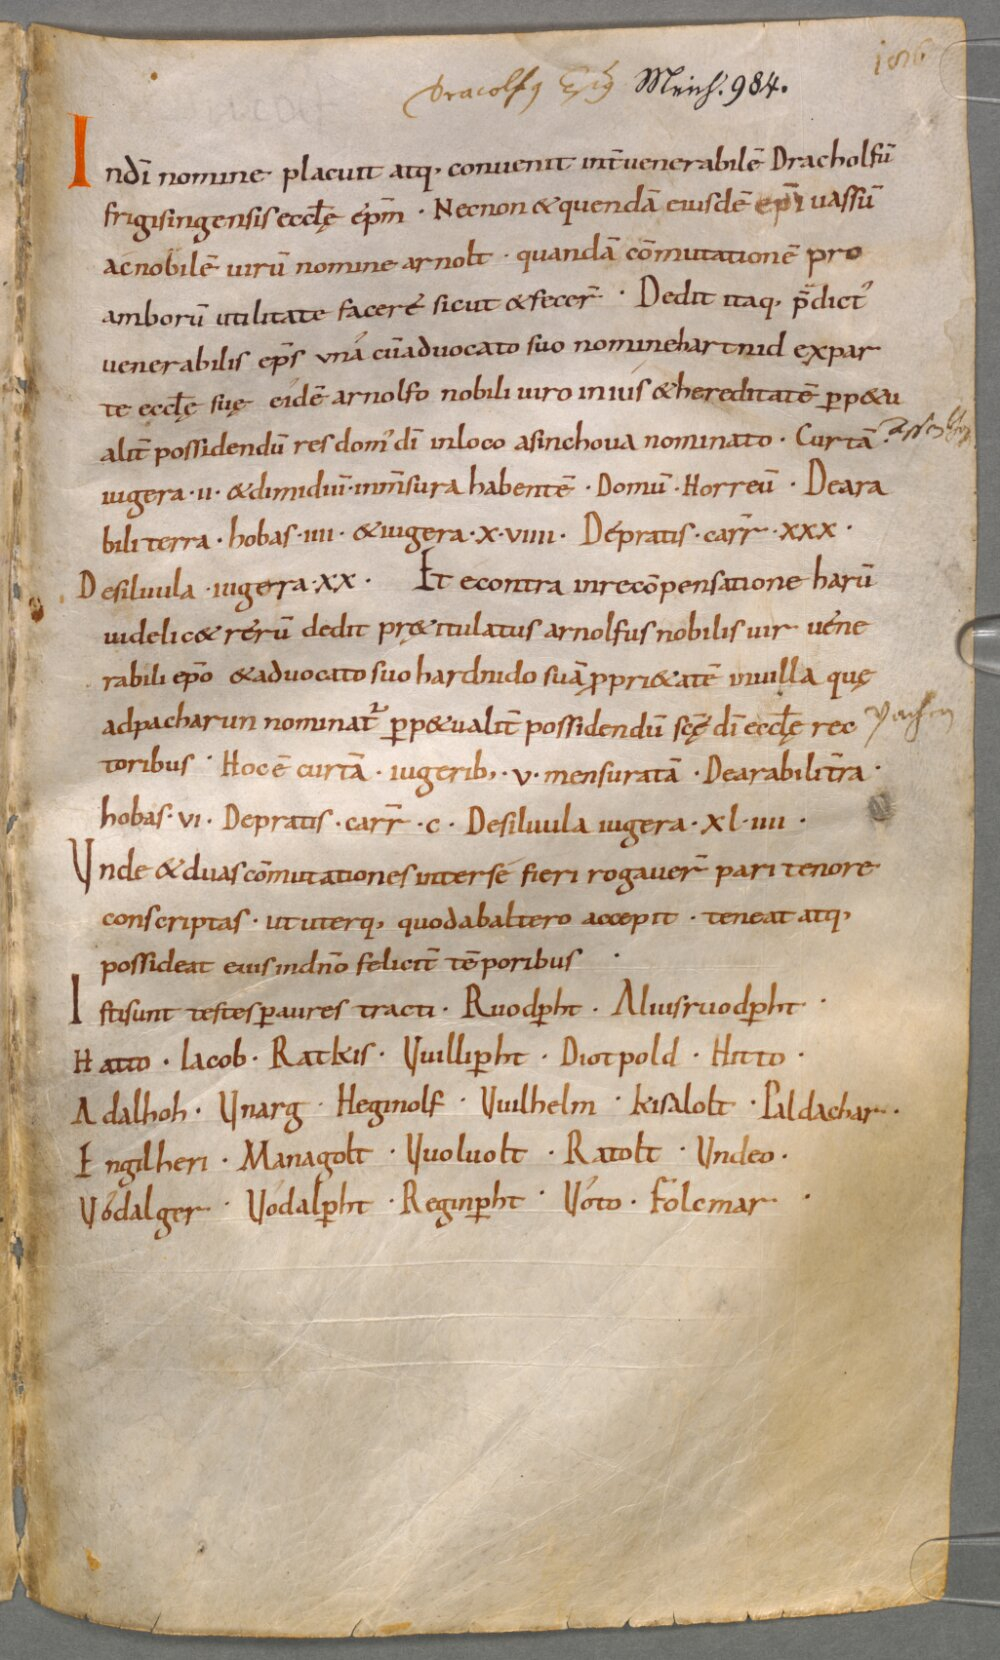 Meich. 984.
Indi̅ nomine placuit atq, convenit int̅ venerabile̅ Dracholfu̅
frigisingensis eccl̅ę ep̅m · Necnon & quenda̅ eiusde̅ ep̅i vassu̅
ac nobile̅ uiru̅ nomine arnolt · quanda̅ co̅mutatione̅ pro
amboru̅ utilitate facere sicut & fecer̅ · Dedit itaq, p̅dict᾽
venerabilis ep̅s una cu̅ advocato suo nomine hartnid ex par
te eccl̅ę suę eide̅ arnolfo nobili uiro in ius & hereditate̅ p̲p&u
alit̅ possidendu̅ res dom᾽ di̅ in loco asinchova nominato · Curta̅
iugera · ii · & dimidiu̅ · in m̅sura habente̅ · Domu̅ · Horreu̅ · De ara
bili terra · hobas · iiii · & iugera · x · viiii · De pratis · carr̅ · xxx ·
De siluula · iugera · xx · Et econtra in reco̅pensatione haru̅
uidelic& reru̅ dedit pręitulatus arnolfus nobilis uir uene
rabili ep̅o & advocato suo hardnido sua̅ p̲pri&ate̅ in uilla quę
ad pacharun nominat᾽ p̲p&ualit̅ possidendu̅ sc̅ę di̅ eccl̅ę rec
toribus · Hoc e̅ curta̅ · iugerib, · v · mensurata̅ · De arabili t̅ra ·
hobas · vi · De pratis · carr̅ · c · De siluula iugera · xl · iiii ·
Unde & duas co̅mutationes inter se fieri rogauer̅ pari tenore
conscriptas · ut uterq, quod ab altero accepit · teneat atq,
possideat euis in dn̅o felicit̅ te̅poribus ·
Isti sunt testes p̲ aures tracti · Ruodp̲ht · Aluisruodp̲ht ·
Hatto · Iacob · Ratkis · Vuillip̲ht · Diotpold · Hitto ·
Adalhoh · Unarg · Heginolf · Vuilhelm · kisalolt · Paldachar ·
Engilheri · Managolt · Vuoluolt · Ratolt · Undeo ·
Vódalger · Vódalp̲ht · Reginp̲ht · Vóto · folcmar ·